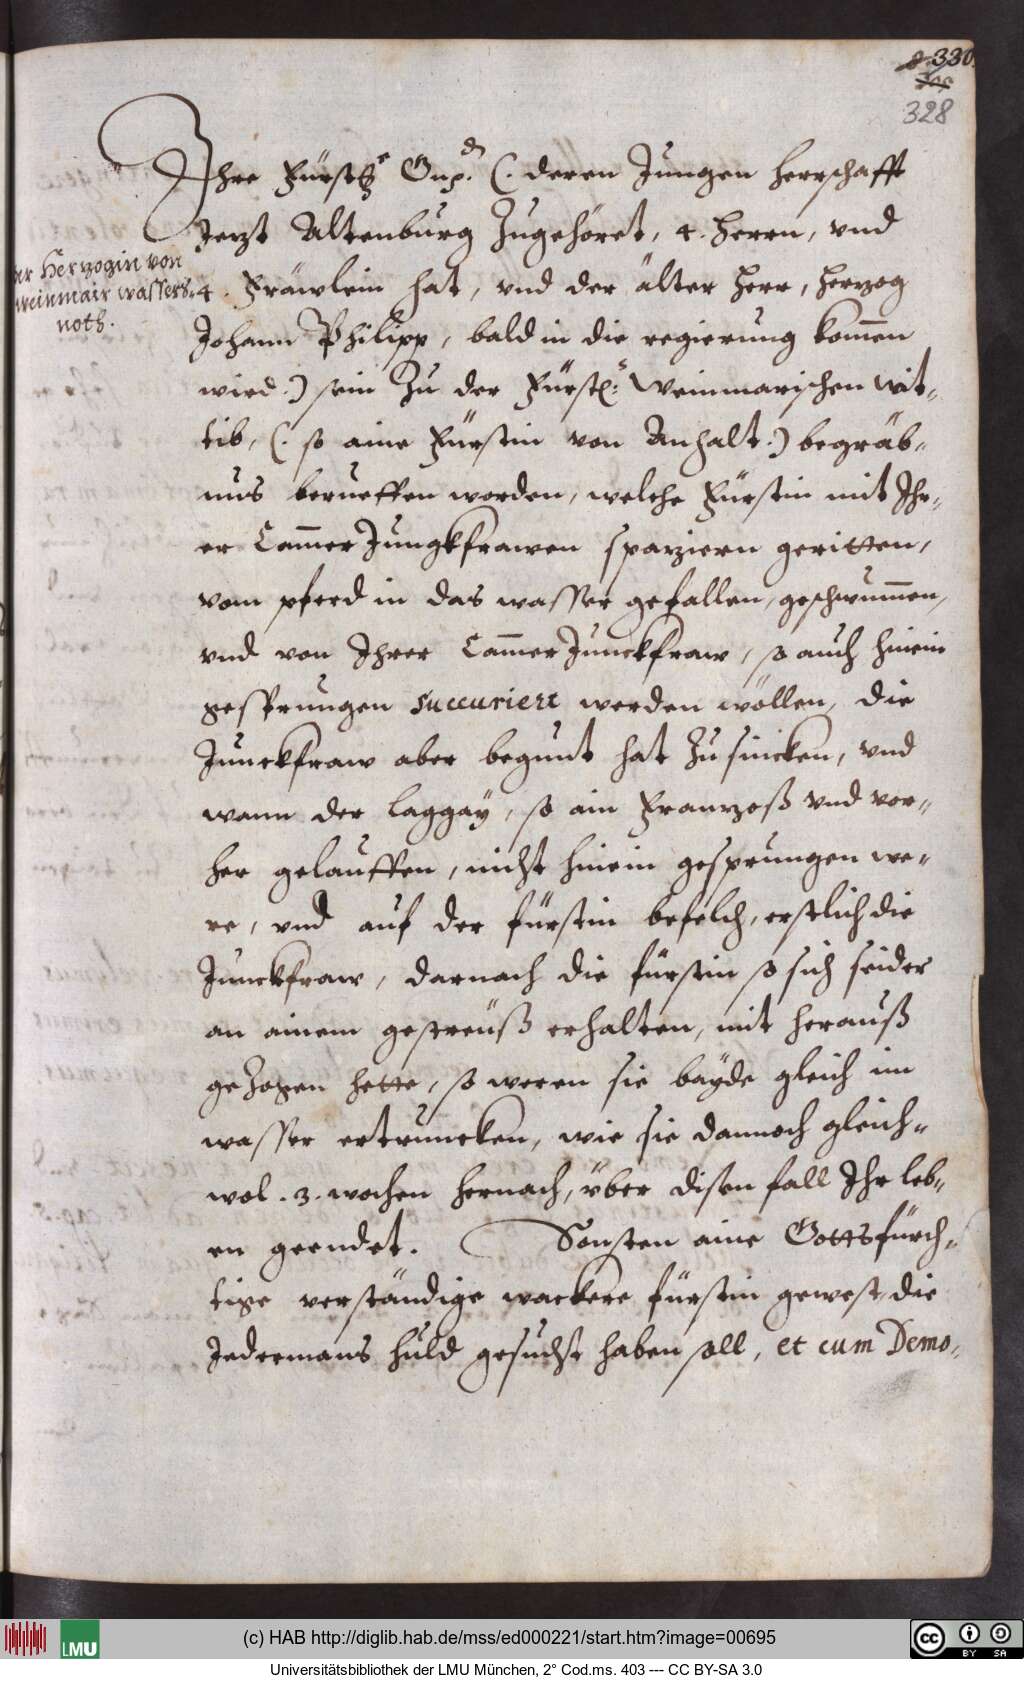 330.
328
Ihre Fürstl: Gnd. (. deren Jungen Herrschafft
Jetzt Altenburg Zugehöret, 4. Herrn, vnd
4. Fräwlein hat, vnd der älter Herr, Hertzog
Johann Philipp, bald in die regierung kom̄en
wird.) sein Zu der Fürstl: Weinmarischen Wit-
tib, (. so aine Fürstin von Anhalt.) begräb-
nus berueffen worden, welche Fürstin mit Ihr-
er Cam̄er Jungkfrawen spatziern geritten,
vom pferd in das wasser gefallen, geschwum̄en,
vnd von Ihrer Cam̄er Junckfraw, so auch hinein
gesprungen succuriert werden wöllen, die
Junckfraw aber begunt hat Zu sincken, vnd
wann der laggay, so ain Frantzoß vnd vor-
her gelauffen, nicht hinein gesprungen we-
re, vnd auf der fürstin befelch, erstlich die
Junckfraw, darnach die fürstin so sich seider
an ainem gestreüß erhalten, mit herauß
geZogen hette, so weren sie bayde gleich im
wasser ertruncken, wie sie dannoch gleich-
wol. 3. wochen hernach, über disen fall Ihr leb-
en geendet. Sonsten aine Gottsfürch-
tige verständige wackere fürstin gewest, die
Jedermans huld gesucht haben soll, et cum Demo-
er Hertzogin von
Weinmair wassers-
noth.
(c) HAB http://diglib.hab.de/mss/ed000221/start.htm?image=00695
LMU
BY SA
Universitätsbibliothek der LMU München, 2° Cod.ms. 403 --- CC BY-SA 3.0